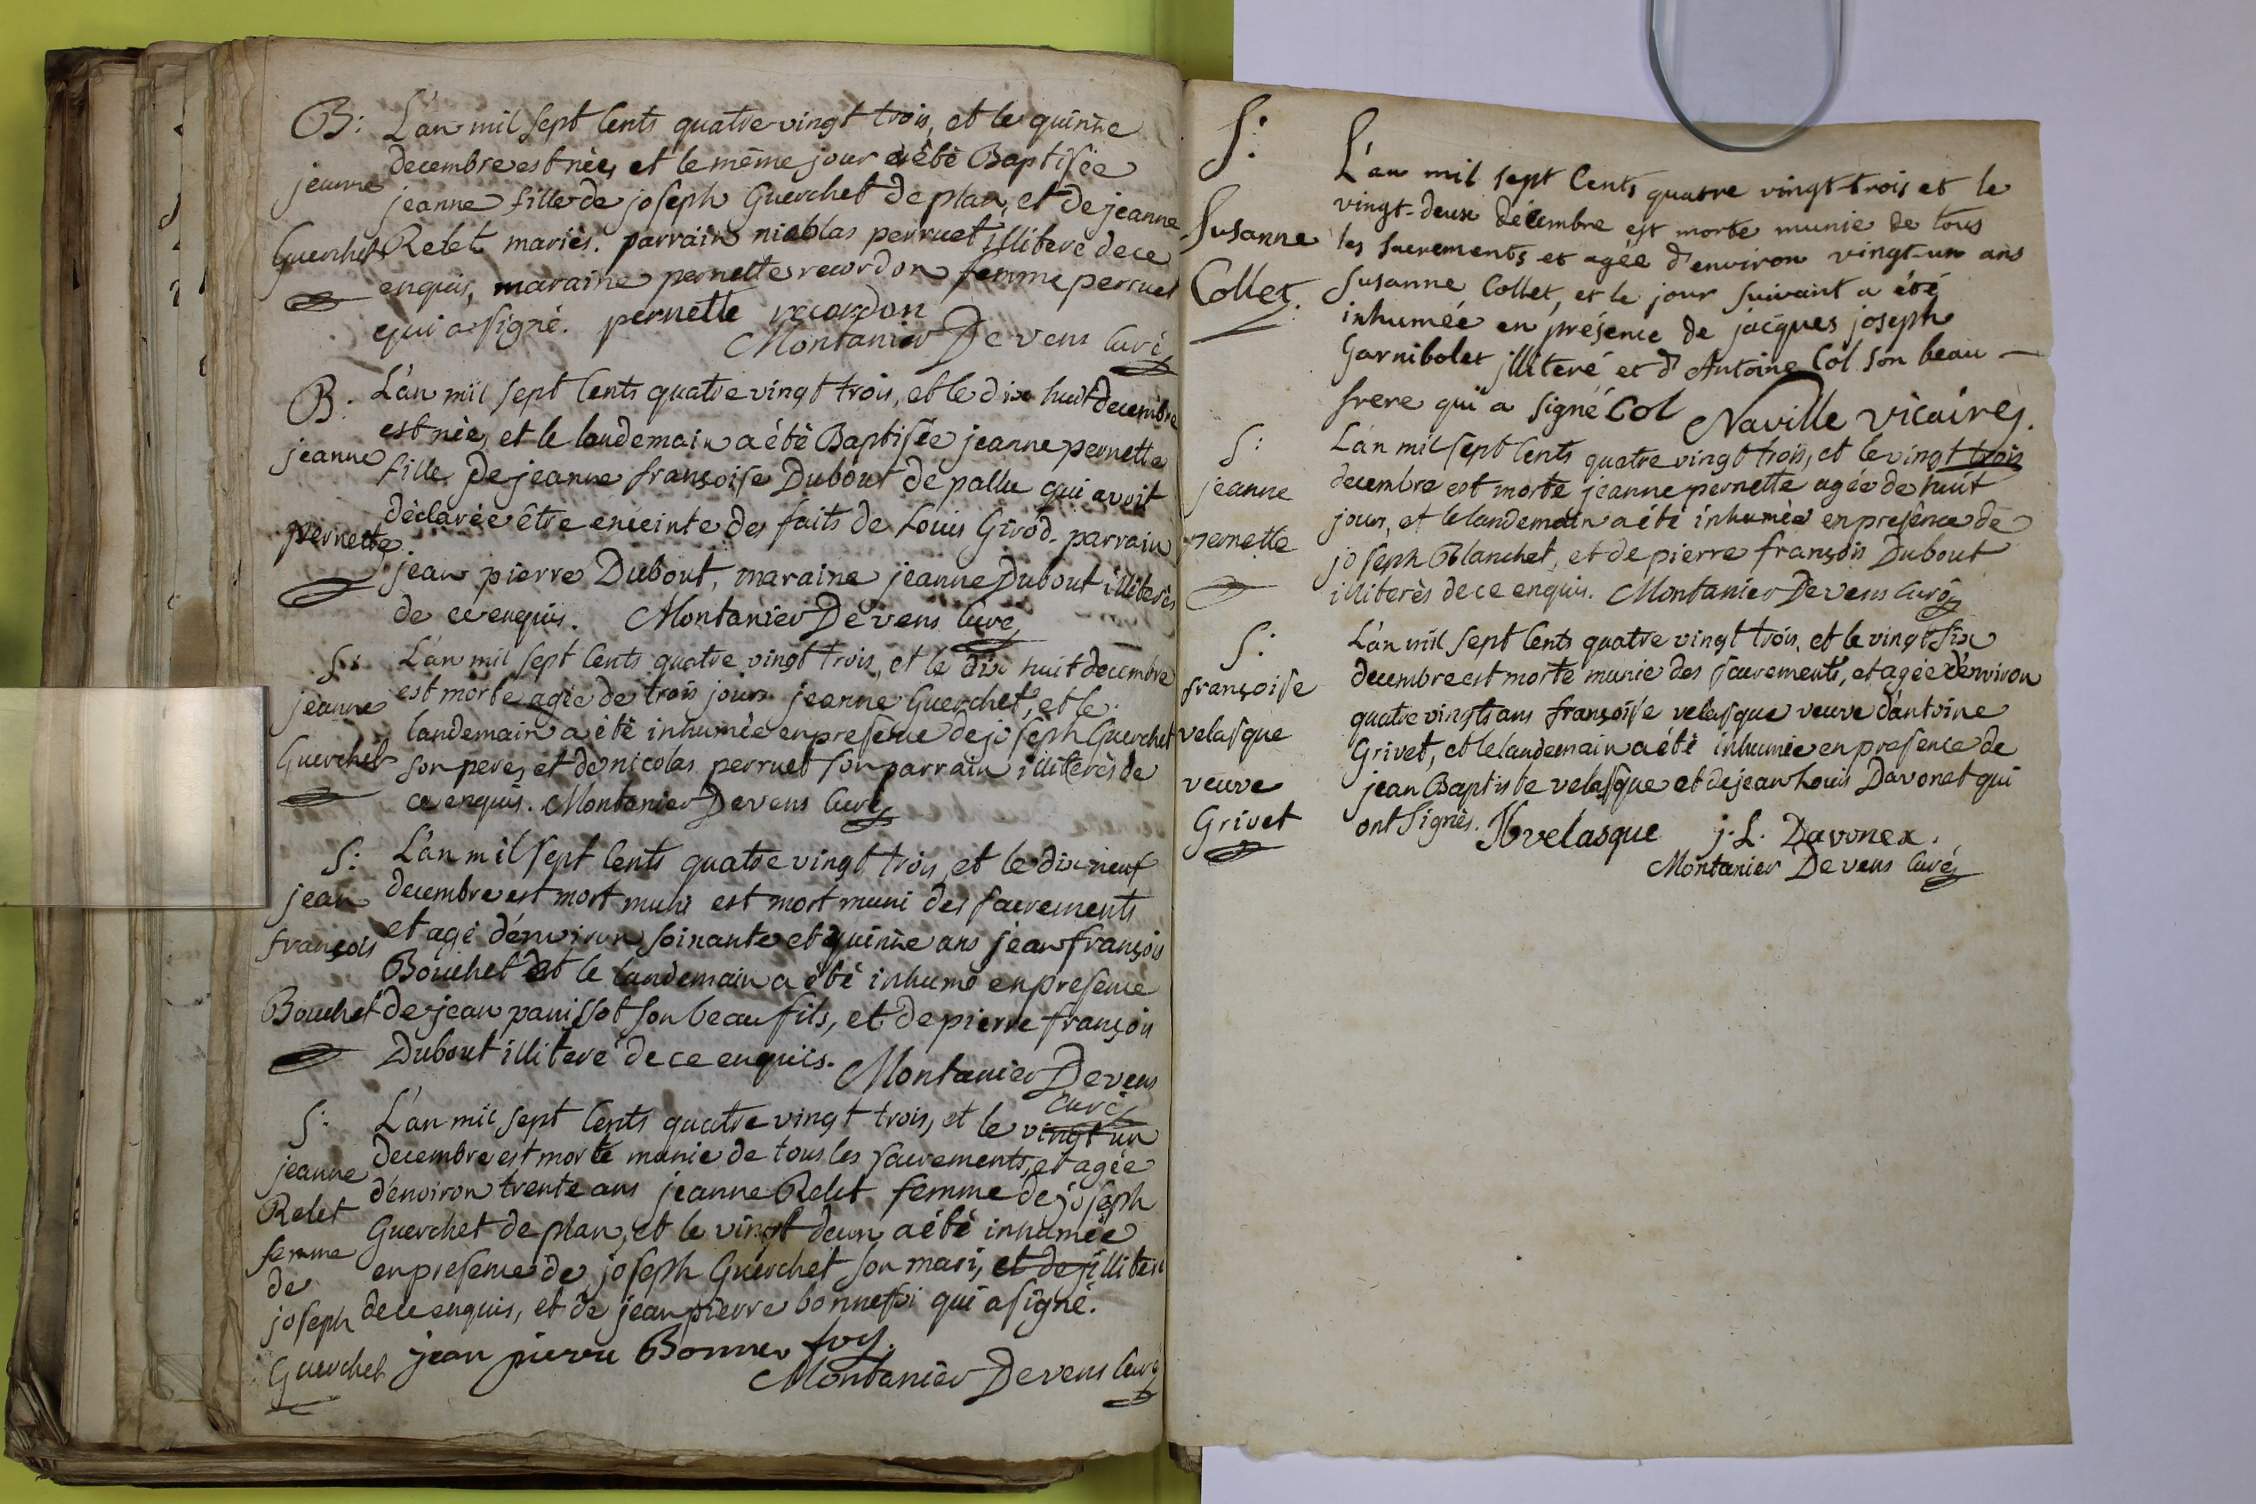 B: L'an mil sept Cents quatre vingt trois, et le quinze
decembre est nèe, et le même jour a ètè Baptisèe
jeanne
jeanne fille de joseph Guerchet de plan, et de jeanne
Guerchet Relet mariès. parrain nicolas perruet illiterè de ce
enquis, maraine pernette recordon femme perruet
qui a signè. pernette recordon
Montanier De vens Curè
B. L'an mil sept Cents quatre vingt trois, et le dix huit decembre
est nèe, et le landemain a étè Baptisèe jeanne pernette
jeanne
fille de jeanne françoise Dubout de pallu qui avoit
dèclarèe être enceinte des faits de Louis Giròd. parrain
pernette.
jean pierre Dubout, maraine jeanne Dubout illiterès
de ce enquis. Montanier De vens Curè
S: L'an mil sept Cents quatre vingt trois, et le dix huit decembre
est morte agèe de trois jours jeanne Guerchet, et le
jeanne
landemain a ètè inhumèe en presence de joseph Guerchet
Guerchet
son pere, et de nicolas perruet son parrain illiterès de
ce enquis. Montanier De vens Curè
S: L'an mil sept Cents quatre vingt trois, et le dix neuf
jean decembre est mort muni est mort muni des sacrements
et agè d'environ soixante et quinze ans jean françois
françois
Bouchet et le landemain a ètè inhumè en presence
Bouchet de jean panissot son beau fils, et de pierre françois
Dubout illiterè de ce enquis. Montanier De vens
Curè
S: L'an mil sept Cents quatre vingt trois, et le vingt un
decembre est morte munie de tous les sacrements, et agèe
jeanne
d'environ trente ans jeanne Relet femme de joseph
Relet
Guerchet de plan, et le vingt deux a étè inhumèe
femme
en presence de joseph Guerchet son mari, et de j illiterè
de
de ce enquis, et de jean pierre bonnefoi qui a signè.
joseph
Guerchet jean pierre Bonne foy.
Montanier De vens Curè
S:
L'an mil sept Cents quatre vingt-trois et le
vingt-deux décembre est morte munie de tous
Susanne les sacrements et agée d'environ vingt-un ans
Collet. Susanne Collet, et le jour suivant a été
inhumée en présence de jacques joseph
Garnibolet jlliteré et d'Antoine Col son beau —
frere qui a signé Col Naville vicaire.
S: L'an mil sept Cents quatre vingt trois, et le vingt trois
jeanne decembre est morte jeanne pernette agèe de huit
jours, et le landemain a étè inhumèe en presènce de
pernette
joseph Blanchet, et de pierre françois Dubout
illiterès de ce enquis. Montanier De vens Curè
S: L'an mil sept Cents quatre vingt trois, et le vingt six
françoise decembre est morte munie des sacrements, et agèe d'environ
quatre vingts ans françoise velasque veuve d'antoine
velasque
Grivet, et le landemain a étè inhumèe en presence de
veuve jean Baptiste velasque et de jean Louis Davonet qui
Grivet ont signès. JB velasque j. L. Davonex.
Montanier De vens Curé